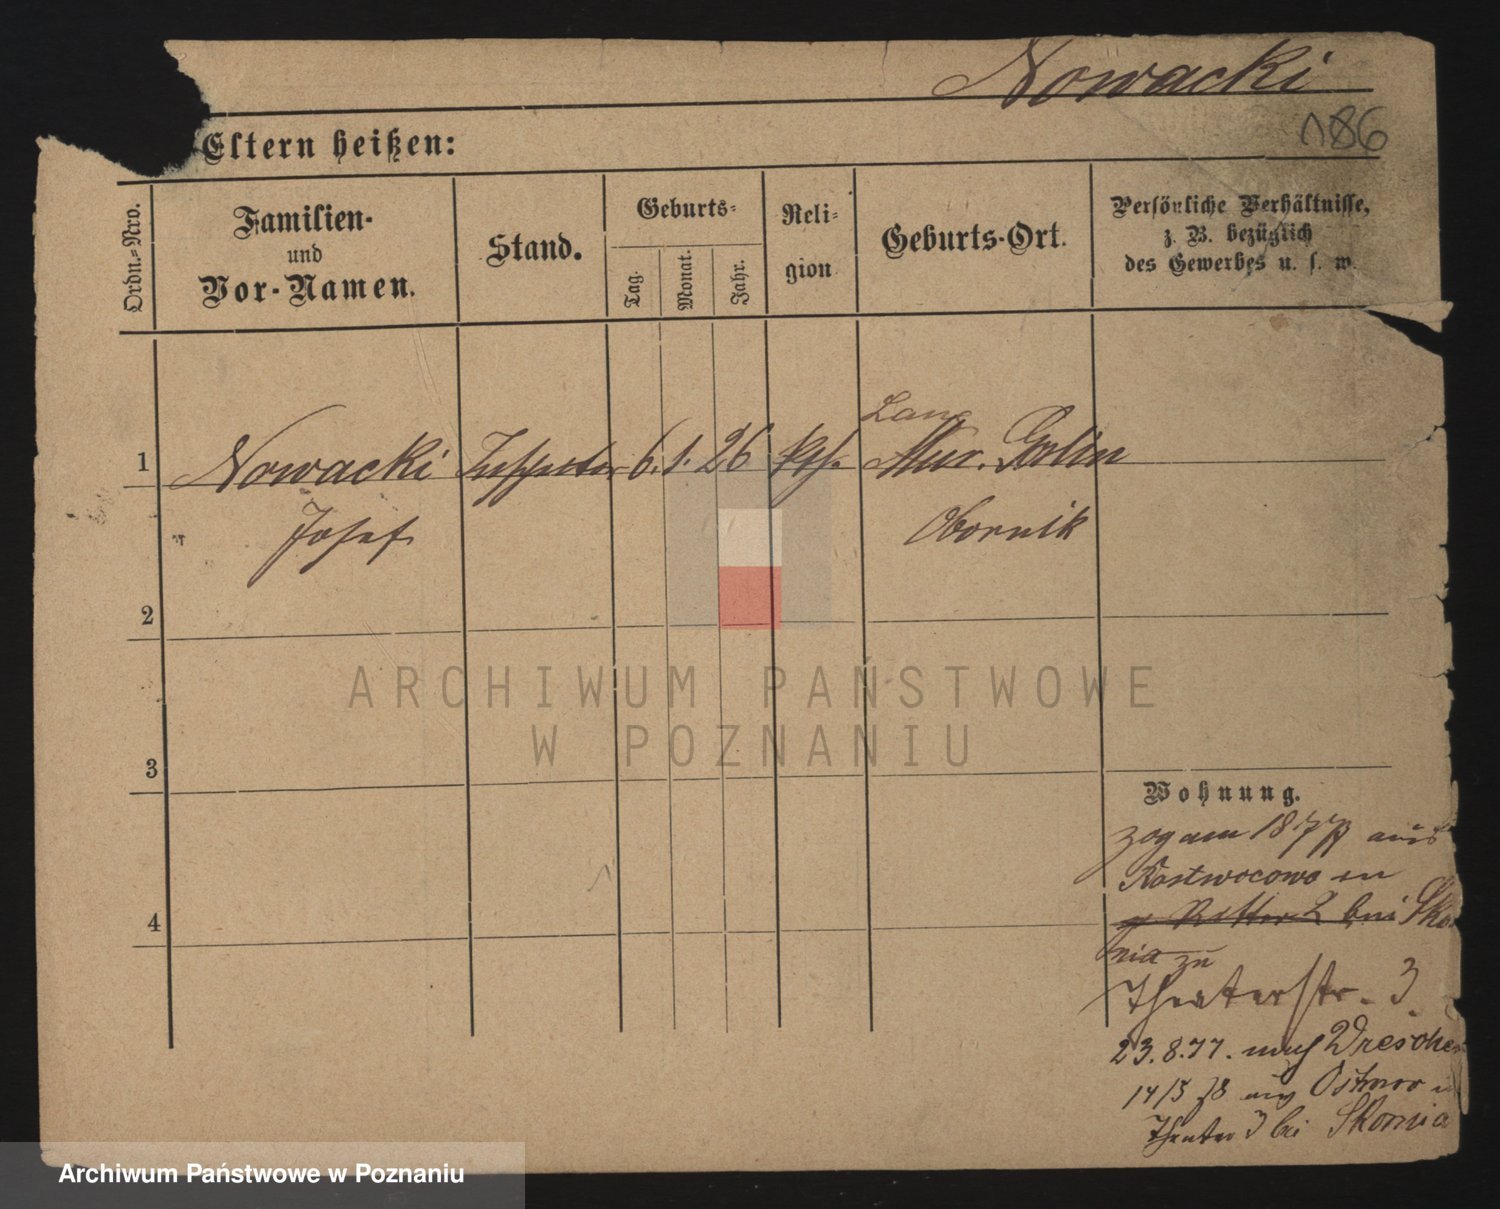 Nowacki
186
Eltern heißen:
Ordn.-Nro.
Familien-
und
Vor-Namen.
Stand.
Geburts-
Tag.
Monat.
Jahr.
Reli-
gion
Geburts-Ort.
Persönliche Verhältnisse,
z. B. bezüglich
des Gewerbes u. s. w.
Lang
1 Nowacki Inspector 6. 1. 26 kth. Mur. Goslin
Josef Obornik
2
ARCHIWUM PAŃSTWOWE
W POZNANIU
3
Wohnung.
zog am 18/7 77 aus
in
4 bei Sko
nia zu
Theaterstr. 3
23.8.77. nach Dresche
14/3 78 aus Ostrow
Theater 3 bei Skornia
Archiwum Państwowe w Poznaniu